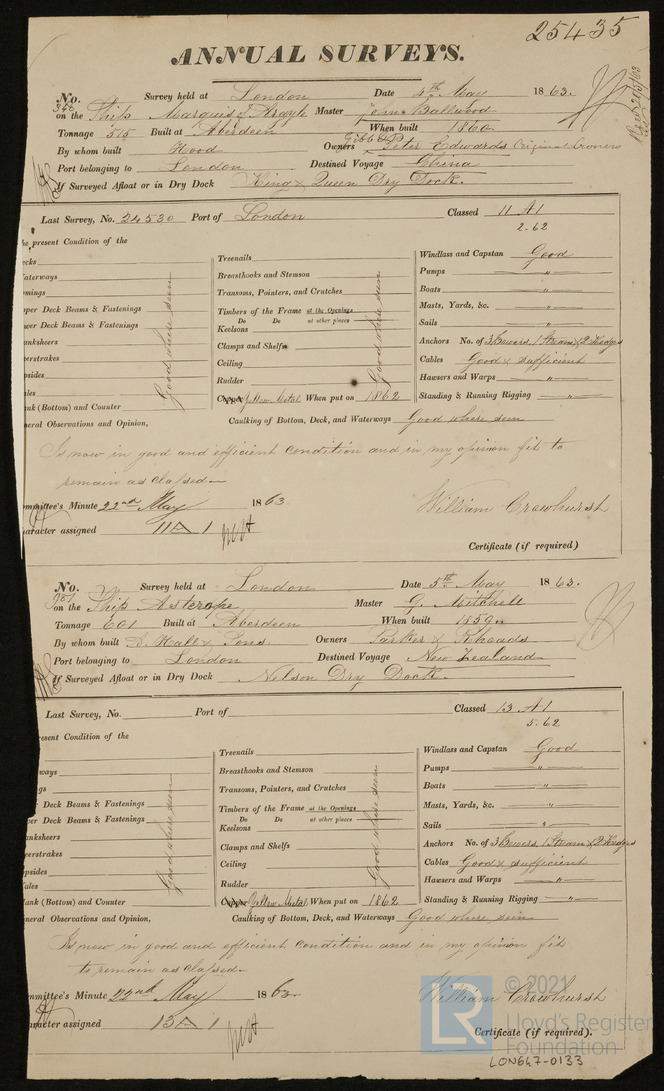 25435
ANNUAL SURVEYS.
No. 348 Survey held at London Date 5th May 1863.
on the Ship Marquis of Argyle Master John Ballwood
Tonnage 515 Built at Aberdeen When built 1860
By whom built Hood Owners Peter Edwards Original Owners
Port belonging to London Destined Voyage China
If Surveyed Afloat or in Dry Dock King & Queen Dry Dock.
Last Survey, No. 24530 Port of London Classed 11 A1
2.62
present Condition of the
Treenails
Windlass and Capstan Good
Breasthooks and Stemson
Pumps "
Transoms, Pointers, and Crutches
Boats "
per Deck Beams & Fastenings
Timbers of the Frame at the Openings
Masts, Yards, &c. "
wer Deck Beams & Fastenings
Do Do at other places
Keelsons
Sails "
anksheers
Clamps and Shelfs
Anchors No. of 3 Bowers, 1 Stream & 2 Kedges
erstrakes
Ceiling
Cables Good & sufficient
psides
Rudder
Hawsers and Warps "
ales
Yellow Metal When put on 1862
Standing & Running Rigging "
Good where seen
Good where seen
ank (Bottom) and Counter
Caulking of Bottom, Deck, and Waterways Good where seen
neral Observations and Opinion,
Is now in good and efficient condition and in my opinion fit to
remain as classed
mmittee's Minute 22nd May 1863
aracter assigned 11 A 1
William Crowhurst
Certificate (if required)
No. Survey held at London Date 5th May 1863.
on the Ship Asterope Master G. Mitchell
Tonnage 601 Built at Aberdeen When built 1859
By whom built A. Hall & Sons Owners Parker & Rhoads
Port belonging to London Destined Voyage New Zealand
If Surveyed Afloat or in Dry Dock Nelson Dry Dock.
Last Survey, No. Port of Classed 13 A1
5.62
resent Condition of the
Treenails
Windlass and Capstan Good
ways
Breasthooks and Stemson
Pumps "
gs
Transoms, Pointers, and Crutches
Boats "
Deck Beams & Fastenings
Timbers of the Frame at the Openings
Masts, Yards, &c. "
er Deck Beams & Fastenings
Do Do at other places
Keelsons
Sails "
anksheers
Clamps and Shelfs
Anchors No. of 3 Bowers, 1 Stream & 2 Kedges
erstrakes
Ceiling
Cables Good & sufficient
psides
Rudder
Hawsers and Warps "
ales
Yellow Metal When put on 1862
Standing & Running Rigging "
Good where seen
Good where seen
lank (Bottom) and Counter
Caulking of Bottom, Deck, and Waterways Good where seen
neral Observations and Opinion,
Is now in good and efficient condition and in my opinion fit
to remain as classed
mmittee's Minute 22nd May 1863
aracter assigned 13 A 1
William Crowhurst
Certificate (if required).
© 2021
LR
Lloyd's Register
Foundation
LON647-0133